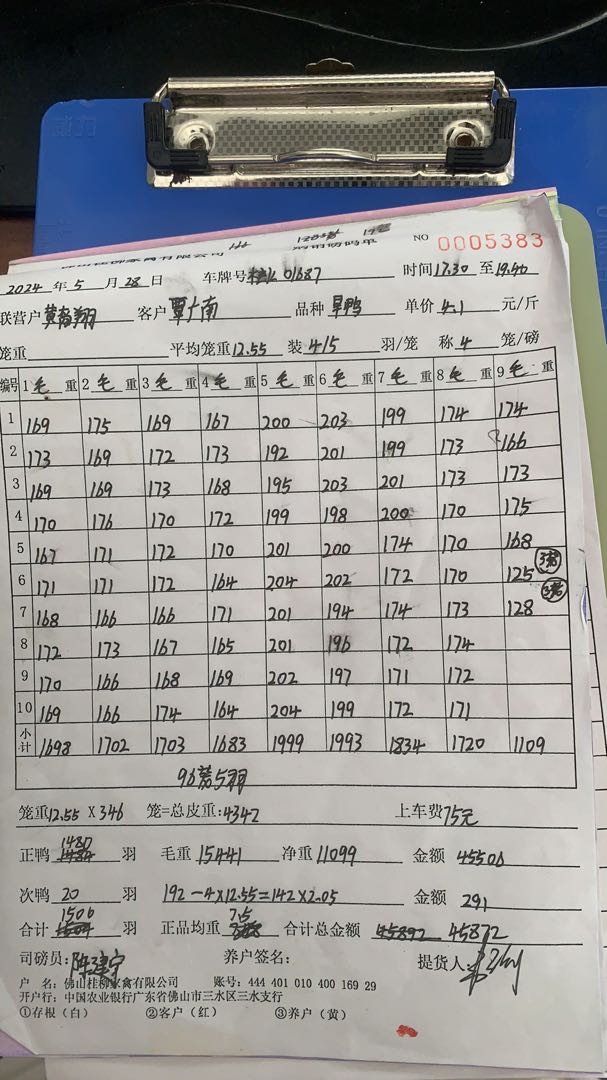 佛山桂柳家禽有限公司 磅码单 NO 0005383
2024 年 5 月 28 日 车牌号 01687 时间 17.30 至 19.40
联营户 客户 覃十南 品种 旱鸭 单价 4.1 元/斤
笼重 平均笼重 12.55 装 4/5 羽/笼 称 4 笼/磅
编号 1 毛 重 2 毛 重 3 毛 重 4 毛 重 5 毛 重 6 毛 重 7 毛 重 8 毛 重 9 毛 重
1 169 175 169 167 200 203 199 174 174
2 173 169 172 173 192 201 199 173 166
3 169 169 173 168 195 203 201 173 173
4 170 176 170 172 199 198 200 170 175
5 167 171 172 170 201 200 174 170 168
6 171 171 172 164 204 202 172 170 125 3笼
7 168 166 166 171 201 194 174 173 128 3笼
8 172 173 167 165 201 196 172 174
9 170 166 168 169 202 197 171 172
10 169 166 174 164 204 199 172 171
小计 1698 1702 1703 1683 1999 1993 1834 1720 1109
96笼5羽
笼重 12.55 X 346 笼=总皮重: 4342 上车费 75元
正鸭 1480 羽 毛重 15441 净重 11099 金额 45506
次鸭 20 羽 192-4×12.55=142×2.05 金额 291
合计 1500 羽 正品均重 7.5 合计总金额 45892 45872
司磅员: 陈建宁 养户签名: 提货人:
户 名: 佛山桂柳家禽有限公司 账号: 444 401 010 400 169 29
开户行: 中国农业银行广东省佛山市三水区三水支行
①存根（白） ②客户（红） ③养户（黄）